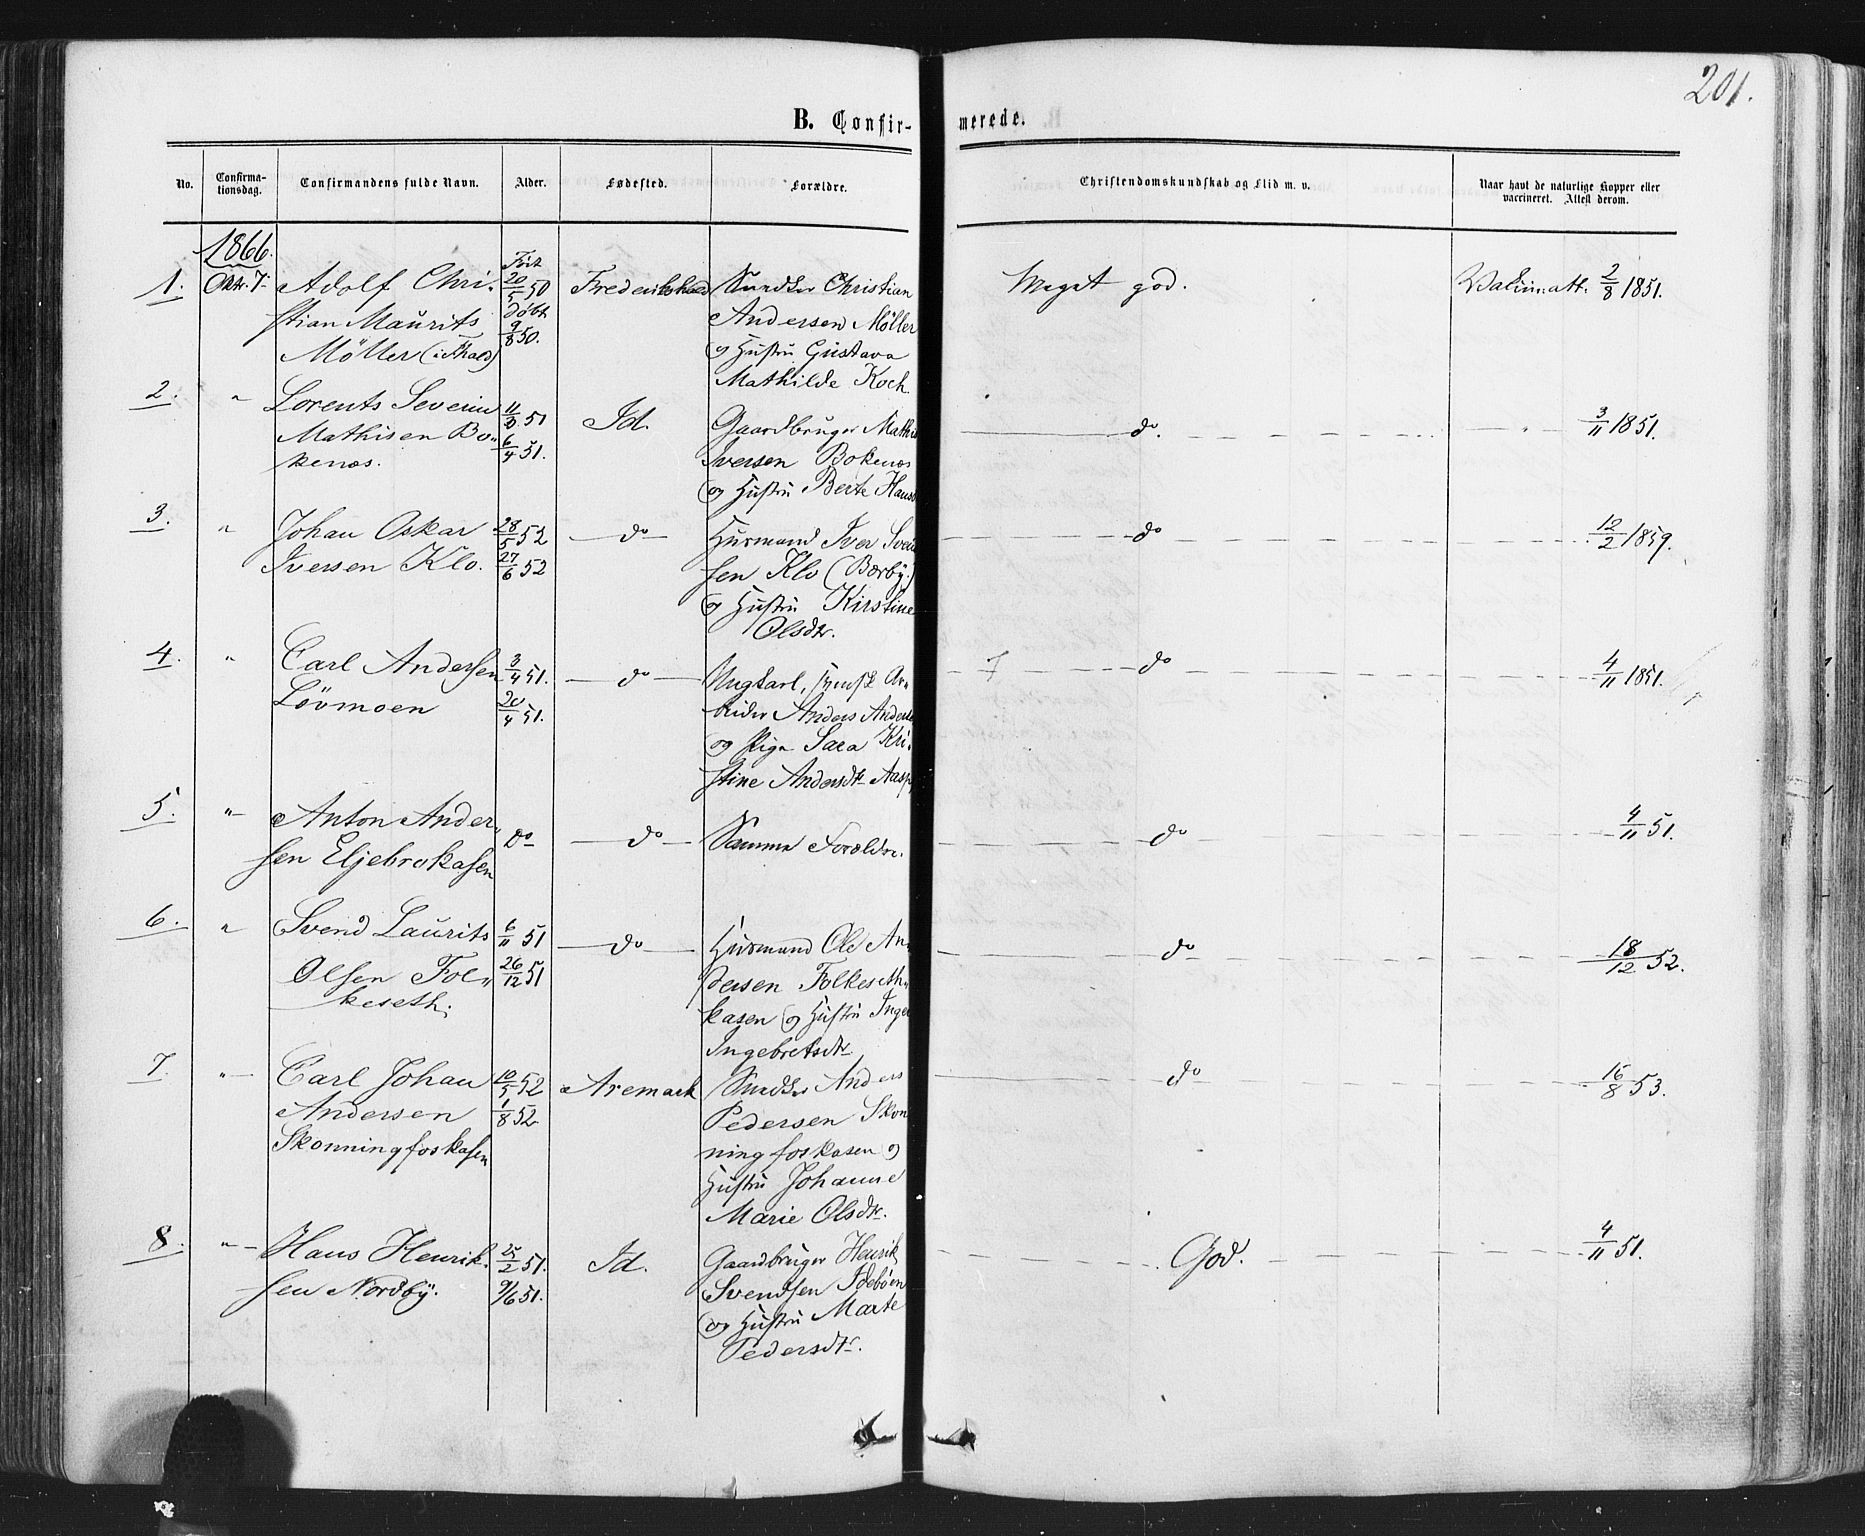 201.
B. Confir-
merede.
No.
Confirma-
tionsdag.
Confirmandens fulde Navn.
Alder.
Fødested.
Forældre.
Christendomskundskab og Flid m. v.
Naar havt de naturlige Kopper eller
vaccineret. Attest derom.
1866.
1. Oktr. 7. Adolf Chri-
stian Maurits
Möller
Født
20/5 50
døbt
9/8 50.
Frederikshald
Christian
Andersen Möller
og Hustru Gustava
Mathilde Koch
Meget god.
2/8 1851.
2. " Lorents Severin
Mathisen Bo-
kenæs.
51
6/4 51.
Id.
Gaardbruger
Iversen Bokenæs
og Hustru Berte
do.
" 3/11 1851.
3. " Johan Oskar
Iversen Klo.
28/5 52
27/6 52
do
Husmand Iver
sen Klo (Bærby.)
og Hustru Kirstine
Olsdtr.
do
12/2 1859.
4. " Carl Andersen
Lövmoen
3/4 51.
20/4 51.
do
Ungkarl, svensk Ar-
beider Anders
og Pige Sara Kri-
stine Andersdtr
do
4/11 1851.
5. " Anton Ander-
sen Eljebrokasen
do
do
Samme Forældre.
do
4/11 51.
6. " Svend Laurits
Olsen Fol-
keseth.
6/11 51
26/12 51
do
Husmand Ole An-
dersen Folkeseth-
kasen og Hustru
Ingebretsdtr
do
18/12 52.
7. " Carl Johan
Andersen
Skonningfoskasen
10/5 52
1/8 52
Aremark
Anders
Pedersen Skon
ningfoskasen og
Hustru Johanne
Marie Olsdtr.
do
16/8 53.
8. " Hans Henrik-
sen Nordby.
25/2 51.
9/6 51.
Id.
Gaardbruger Henrik
Svendsen Idebøen
og Hustru Marte
Pedersdtr.
God.
4/11 51.